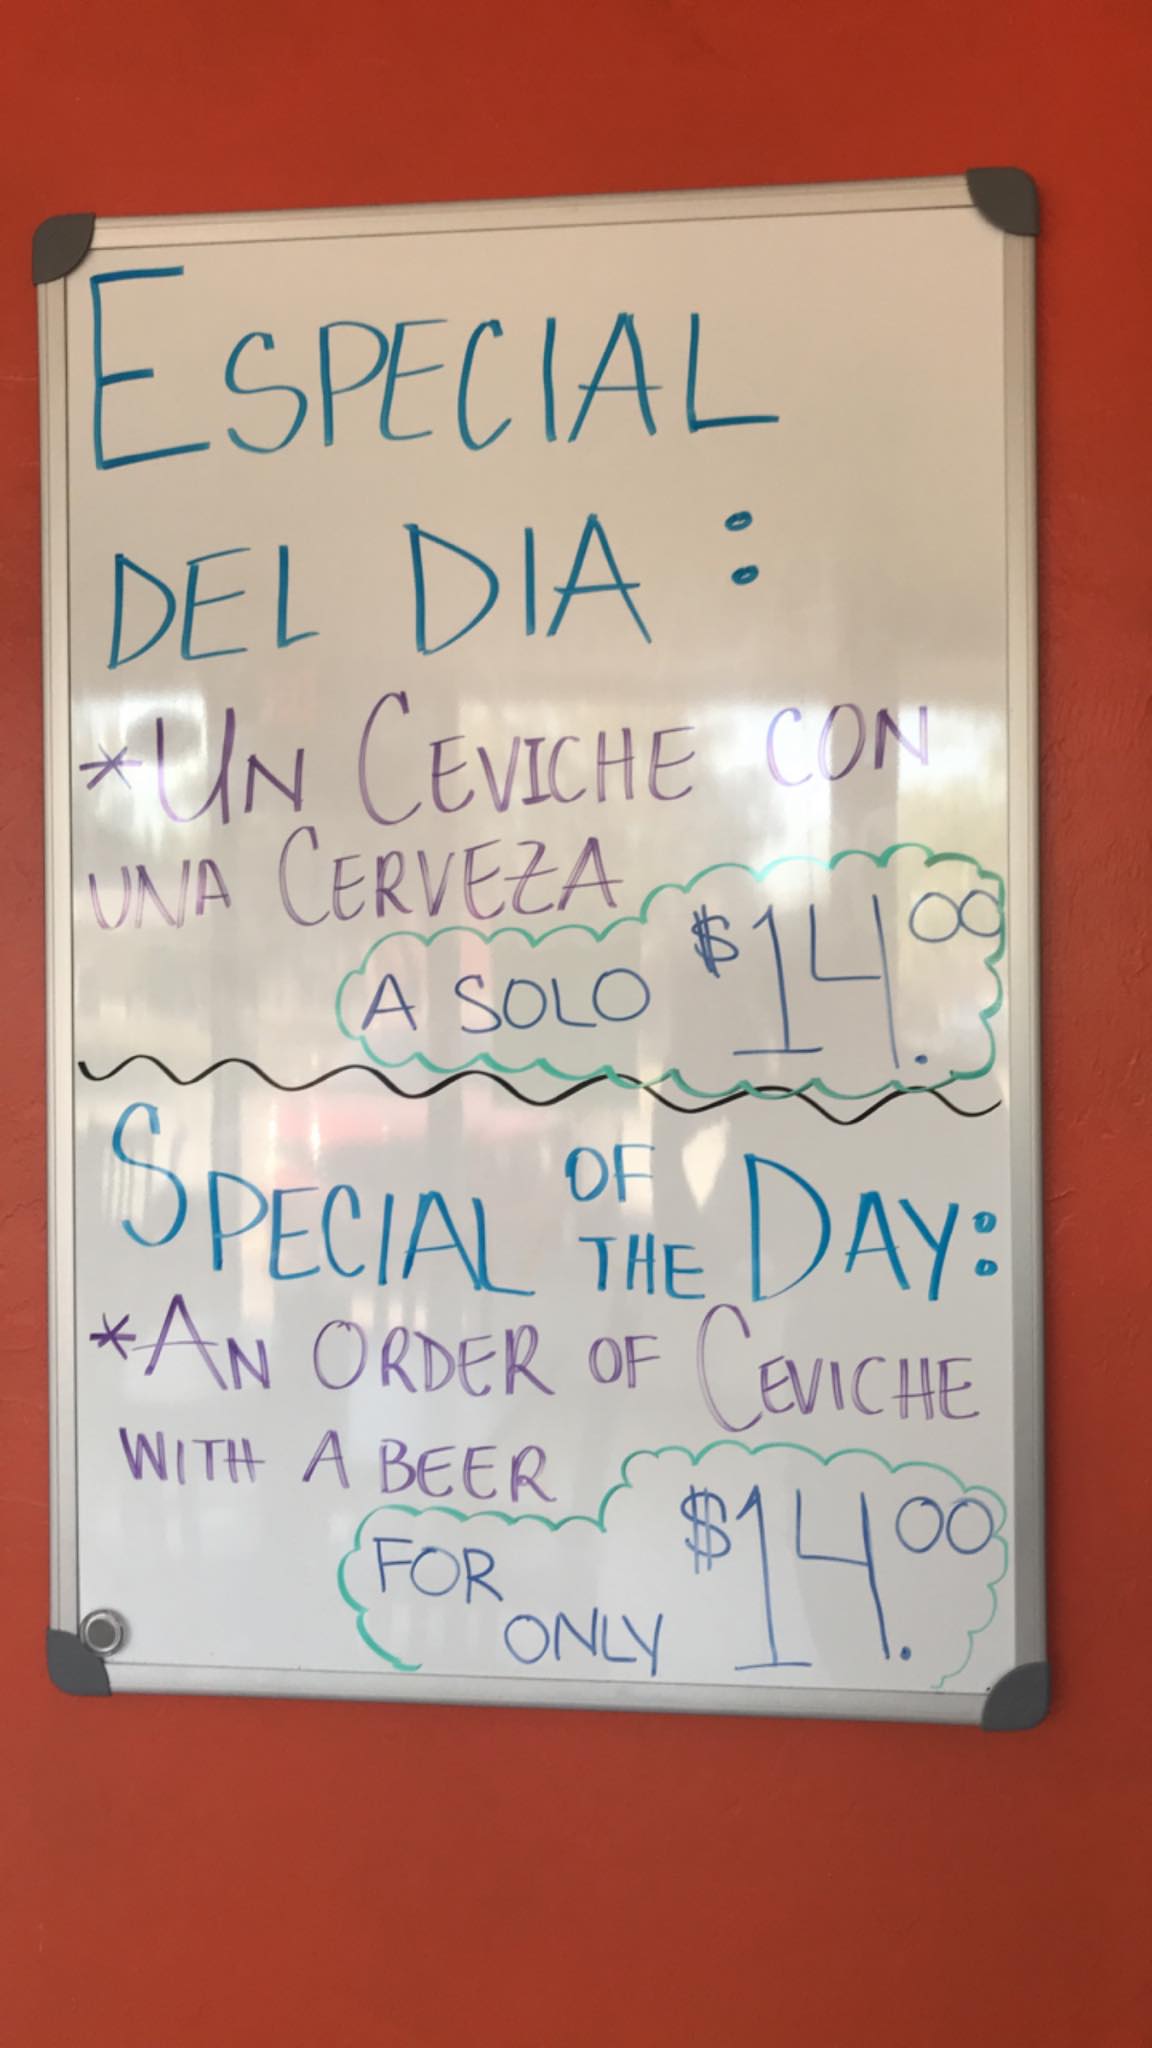 ESPECIAL
DEL DIA:
*UN CEVICHE CON
UNA CERVEZA
A SOLO $14.00
SPECIAL OF THE DAY:
*AN ORDER OF CEVICHE
WITH A BEER
FOR ONLY $14.00